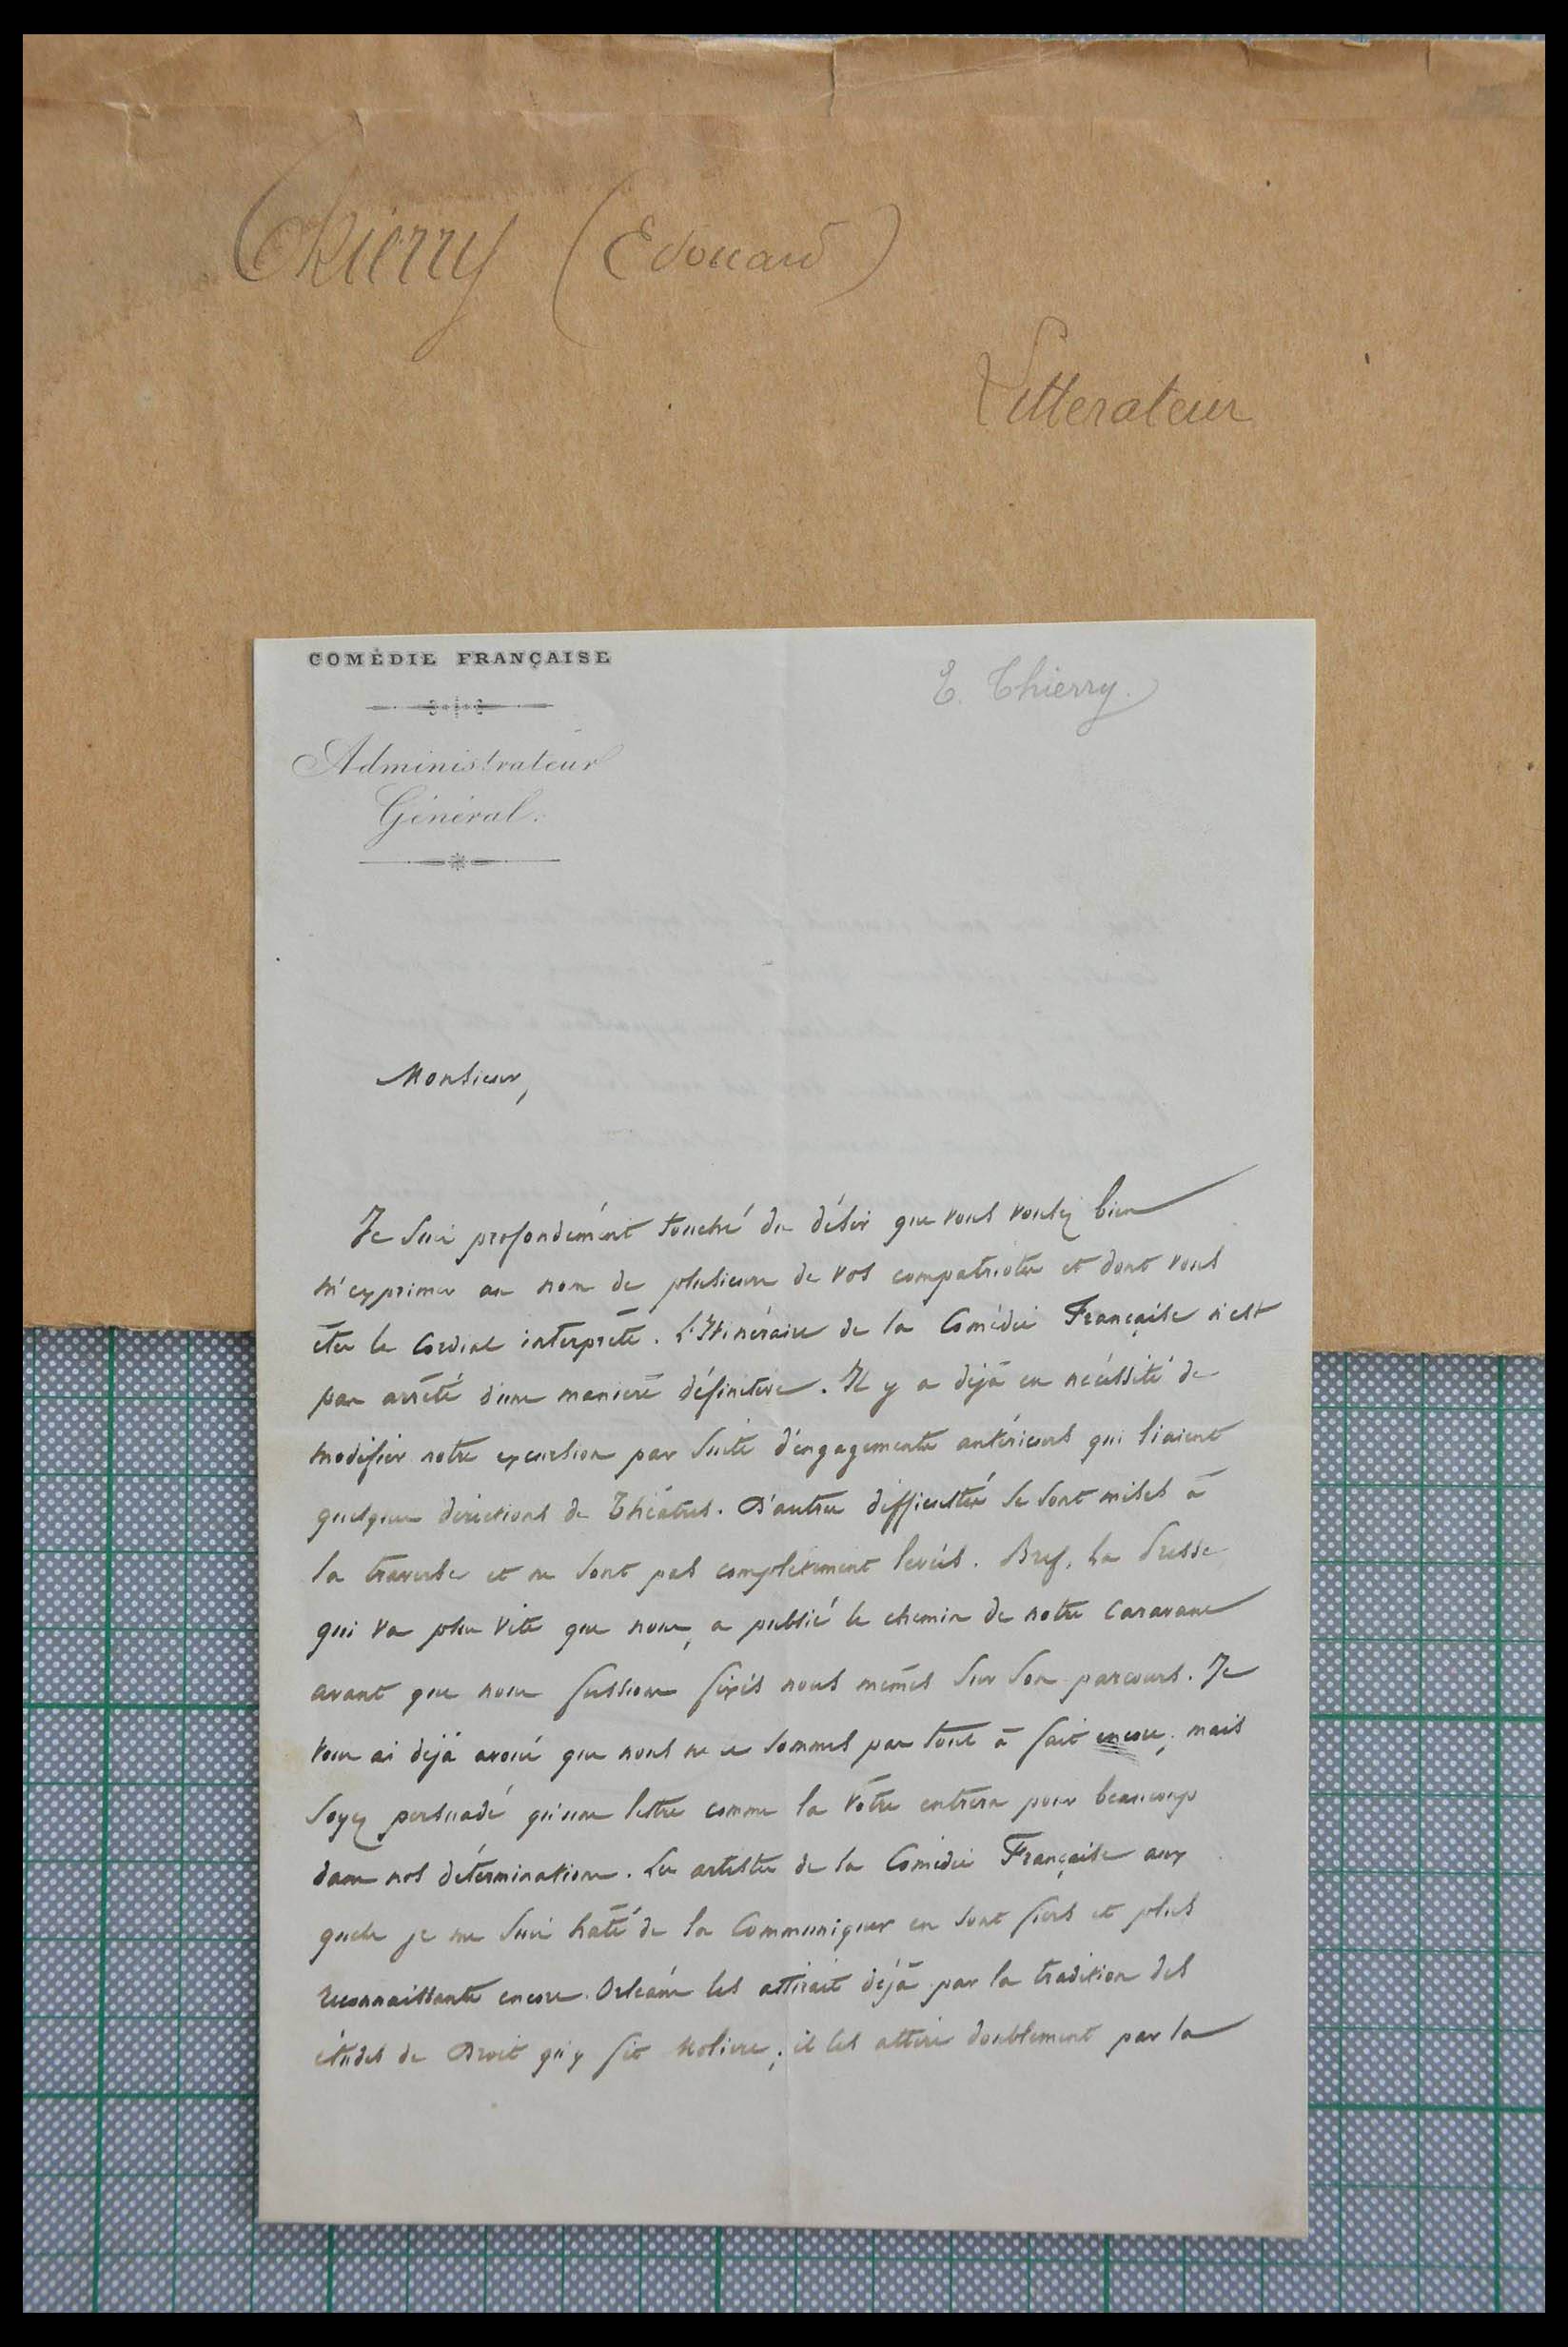 Thierry (Edouard)
Litterateur
COMÉDIE FRANÇAISE
E. Thierry.
Administrateur
Général.
Monsieur,
Je suis profondément touché du désir que vous voulez bien
m'exprimer au nom de plusieurs de vos compatriotes et dont vous
êtes le cordial interprète. L'Itinéraire de la Comédie Française n'est
pas arrêté d'une manière définitive. Il y a déjà eu nécessité de
modifier notre excursion par suite d'engagements antérieurs qui liaient
quelques directions de Théâtres. D'autres difficultés se sont mises à
la traverse et ne sont pas complètement levées. Bref, la Presse
qui va plus vite que nous, a publié le chemin de notre caravane
avant que nous fussions fixés nous mêmes sur son parcours. Je
vous ai déjà avoué que nous ne le sommes pas tout à fait encore; mais
soyez persuadé qu'une lettre comme la vôtre entrera pour beaucoup
dans nos déterminations. Les artistes de la Comédie Française aux
quels je me suis hâté de la communiquer en sont fiers et plus
reconnaissants encore. Orléans les attirait déjà par la tradition des
études de Droit qu'y fit Molière; il les attire doublement par la